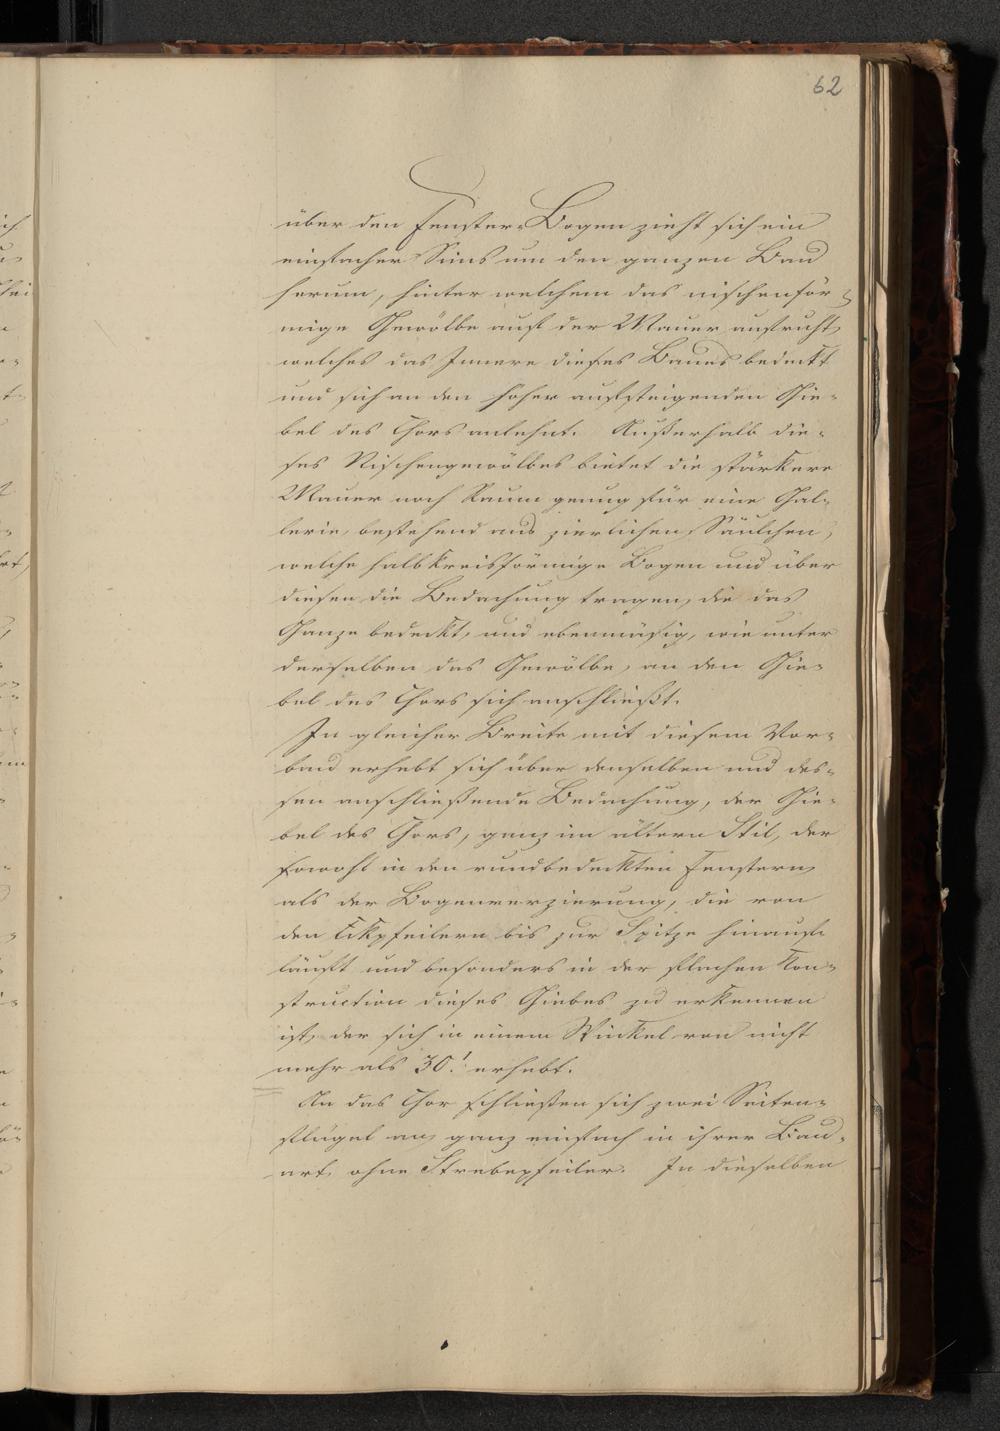 62
über den Fenster-Bogen zieht sich ein
einfacher Sims um den ganzen Bau
herum, hinter welchem das nischenför-
mige Gewölbe auf der Mauer aufruht,
welches das Innere dieses Baues bedeckt
und sich an den höher aufsteigenden Gie-
bel des Chors anlehnt. Außerhalb die-
ses Nischengewölbes bietet die stärkere
Mauer noch Raum genug für eine Gal-
lerie, bestehend aus zierlichen Säulchen,
welche halbkreisförmige Bogen und über
diesen die Bedachung tragen, die das
Ganze bedeckt, und ebenmäsig, wie unter
derselben das Gewölbe, an den Gie-
bel des Chors sich anschließt.
In gleicher Breite mit diesem Vor-
bau erhebt sich über denselben und des-
sen anschließende Bedachung, der Gie-
bel des Chors, ganz im ältern Stil, der
sowohl in den rundbedeckten Fenstern,
als der Bogenverzierung, die von
den Eckpfeilern bis zur Spitze hinauf
läuft und besonders in der flachen Kon-
struction dieses Giebes zu erkennen
ist, der sich in einem Winkel von nicht
mehr als 30.' erhebt.
An das Chor schließen sich zwei Seiten-
flügel an, ganz einfach in ihrer Bau-
art, ohne Strebepfeiler. In dieselben